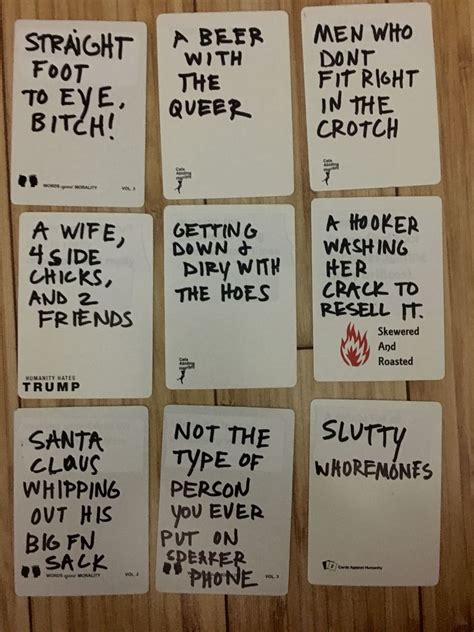 STRAIGHT
FOOT
TO EYE,
BITCH!
WORDS against MORALITY
VOL. 3
A BEER
WITH
THE
QUEER
Cats
Abiding
MEN WHO
DONT
FIT RIGHT
IN THE
CROTCH
Cats
Abiding
A WIFE,
4 SIDE
CHICKS,
AND 2
FRIENDS
HUMANITY HATES
TRUMP
GETTING
DOWN &
DIRY WITH
THE HOES
Cats
Abiding
A HOOKER
WASHING
HER
CRACK TO
RESELL IT.
Skewered
And
Roasted
SANTA
CLAUS
WHIPPING
OUT HIS
BIG FN
SACK
WORDS against MORALITY
VOL. 2
NOT THE
TYPE OF
PERSON
YOU EVER
PUT ON
SPEAKER
PHONE
WORDS against MORALITY
VOL. 3
SLUTTY
WHOREMONES
Cards Against Humanity